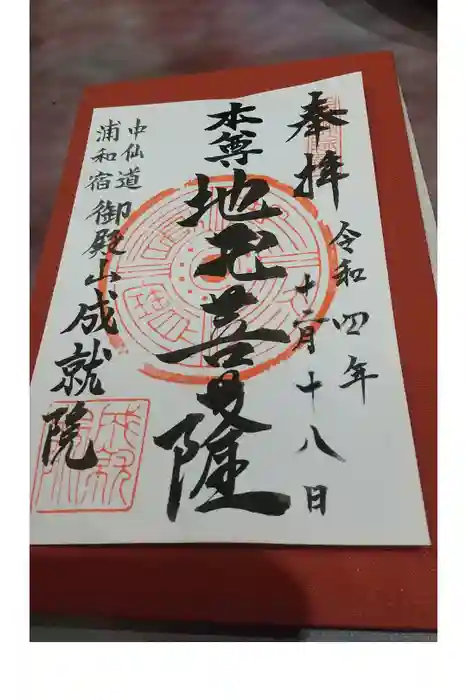 奉拝
令和四年
十二月十八日
本尊
地蔵菩薩
中仙道
浦和宿
御殿山成就院